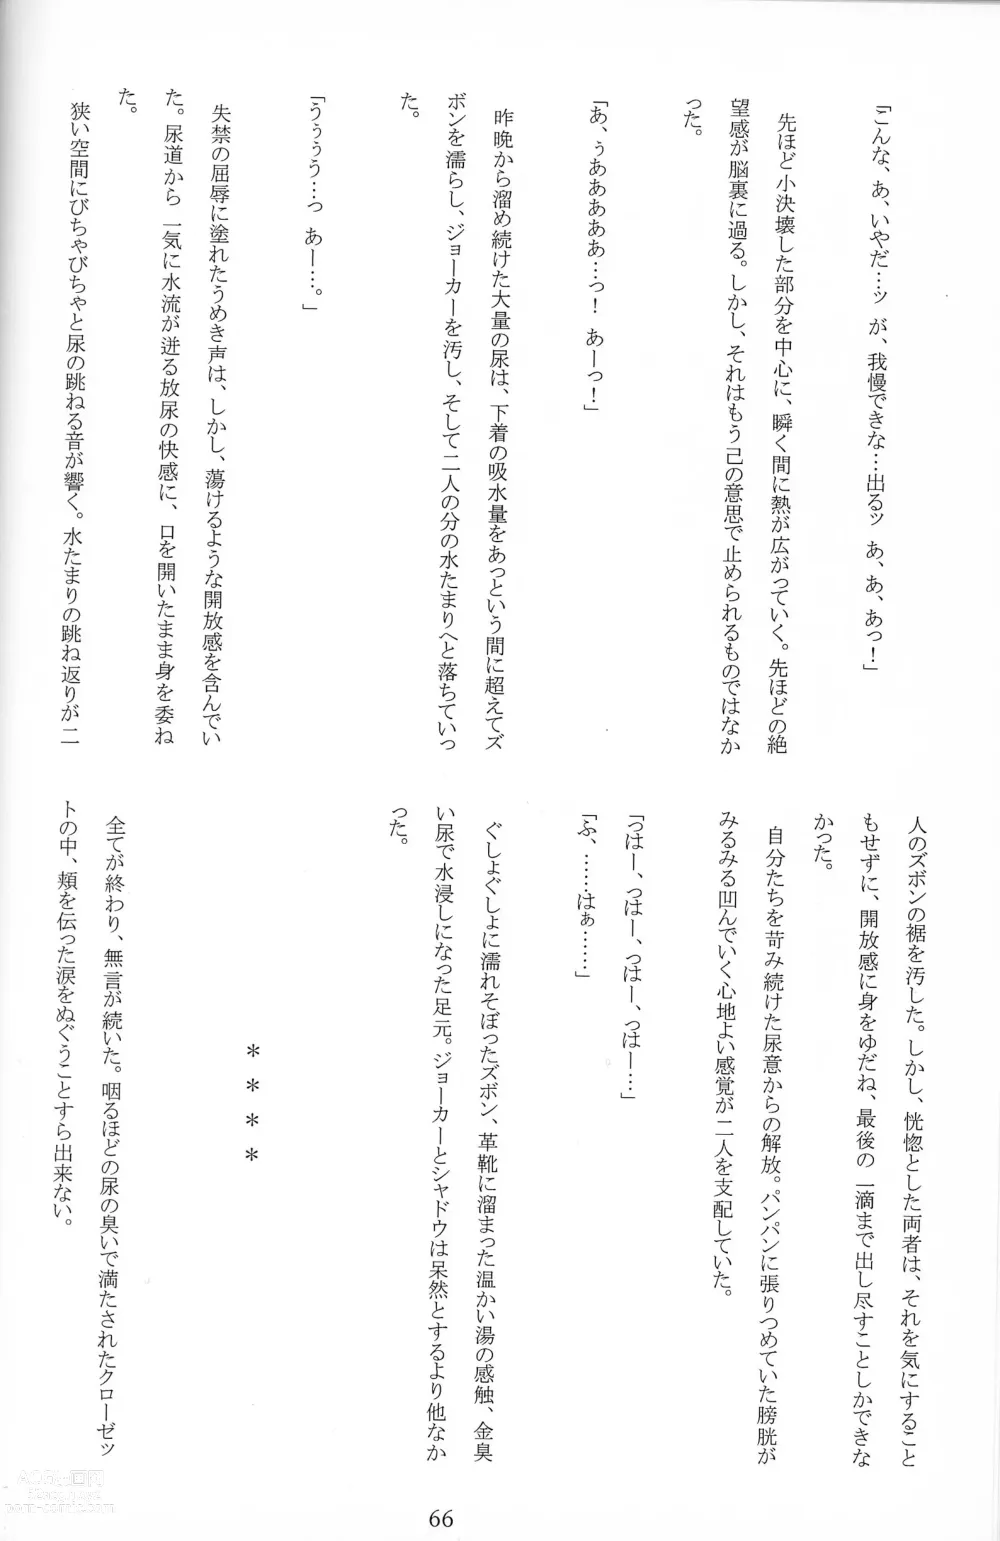 「こんな、あ、いやだ…ッ　が、我慢できな…出るッ　あ、あ、あっ！」
　先ほど小決壊した部分を中心に、瞬く間に熱が広がっていく。先ほどの絶
望感が脳裏に過る。しかし、それはもう己の意思で止められるものではなか
った。
「あ、ぅあああああ…っ！　あーっ！」
　昨晩から溜め続けた大量の尿は、下着の吸水量をあっという間に超えてズ
ボンを濡らし、ジョーカーを汚し、そして二人の分の水たまりへと落ちていっ
た。
「うぅぅう…っ　あー…。」
　失禁の屈辱に塗れたうめき声は、しかし、蕩けるような開放感を含んでい
た。尿道から一気に水流が迸る放尿の快感に、口を開いたまま身を委ね
た。
　狭い空間にびちゃびちゃと尿の跳ねる音が響く。水たまりの跳ね返りが二
人のズボンの裾を汚した。しかし、恍惚とした両者は、それを気にすること
もせずに、開放感に身をゆだね、最後の一滴まで出し尽すことしかできな
かった。
　自分たちを苛み続けた尿意からの解放。パンパンに張りつめていた膀胱が
みるみる凹んでいく心地よい感覚が二人を支配していた。
「っはー、っはー、っはー、っはー…」
「ふ、……はぁ……」
　ぐしょぐしょに濡れそぼったズボン、革靴に溜まった温かい湯の感触、金臭
い尿で水浸しになった足元。ジョーカーとシャドウは呆然とするより他なか
った。
＊＊＊＊
　全てが終わり、無言が続いた。咽るほどの尿の臭いで満たされたクローゼッ
トの中、頬を伝った涙をぬぐうことすら出来ない。
66